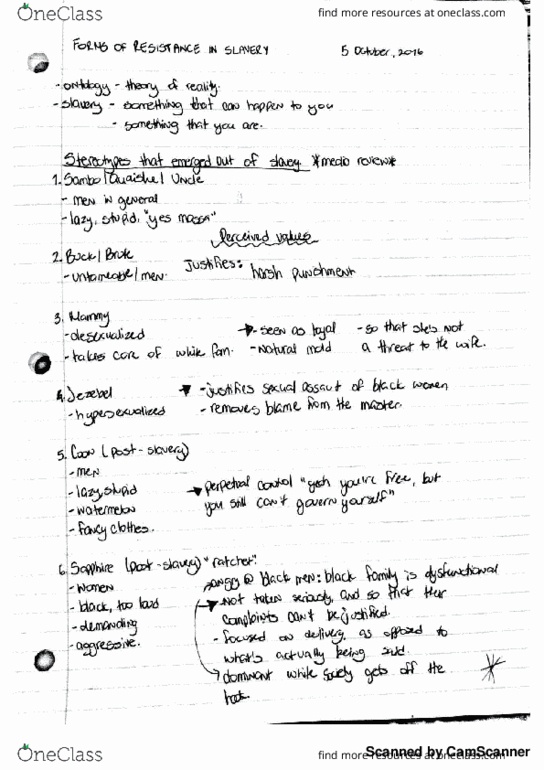 OneClass
find more resources at oneclass.com
FORMS OF RESISTANCE IN SLAVERY 5 October, 2016
- ontology - theory of reality.
- slavery - something that can happen to you
- something that you are.
Stereotypes that emerged out of slavery *media review*
1. Sambo / Quaishe / Uncle
- men in general
- lazy, stupid, "yes massa"
Perceived values
2. Buck / Brute Justifies: harsh punishment
- untameable / men.
3. Mammy
- desexualized - seen as loyal - so that she's not
- takes care of white fam. - natural maid a threat to the wife.
4. Jezebel - justifies sexual assaut of black women
- hypersexualized - removes blame from the master.
5. Coon (post-slavery)
- men
- lazy, stupid perpetual control "yeah you're free, but
- watermelon you still can't govern yourself"
- fancy clothes.
6. Sapphire (post-slavery) "ratchet".
- women angry @ black men: black family is dysfunctional
- black, too loud - Not taken seriously, and so that their
- demanding complaints can't be justified.
- aggressive. - focused on delivery, as opposed to
what's actually being said.
dominant white society gets off the
hook.
OneClass
find more resources at oneclass.com
Scanned by CamScanner